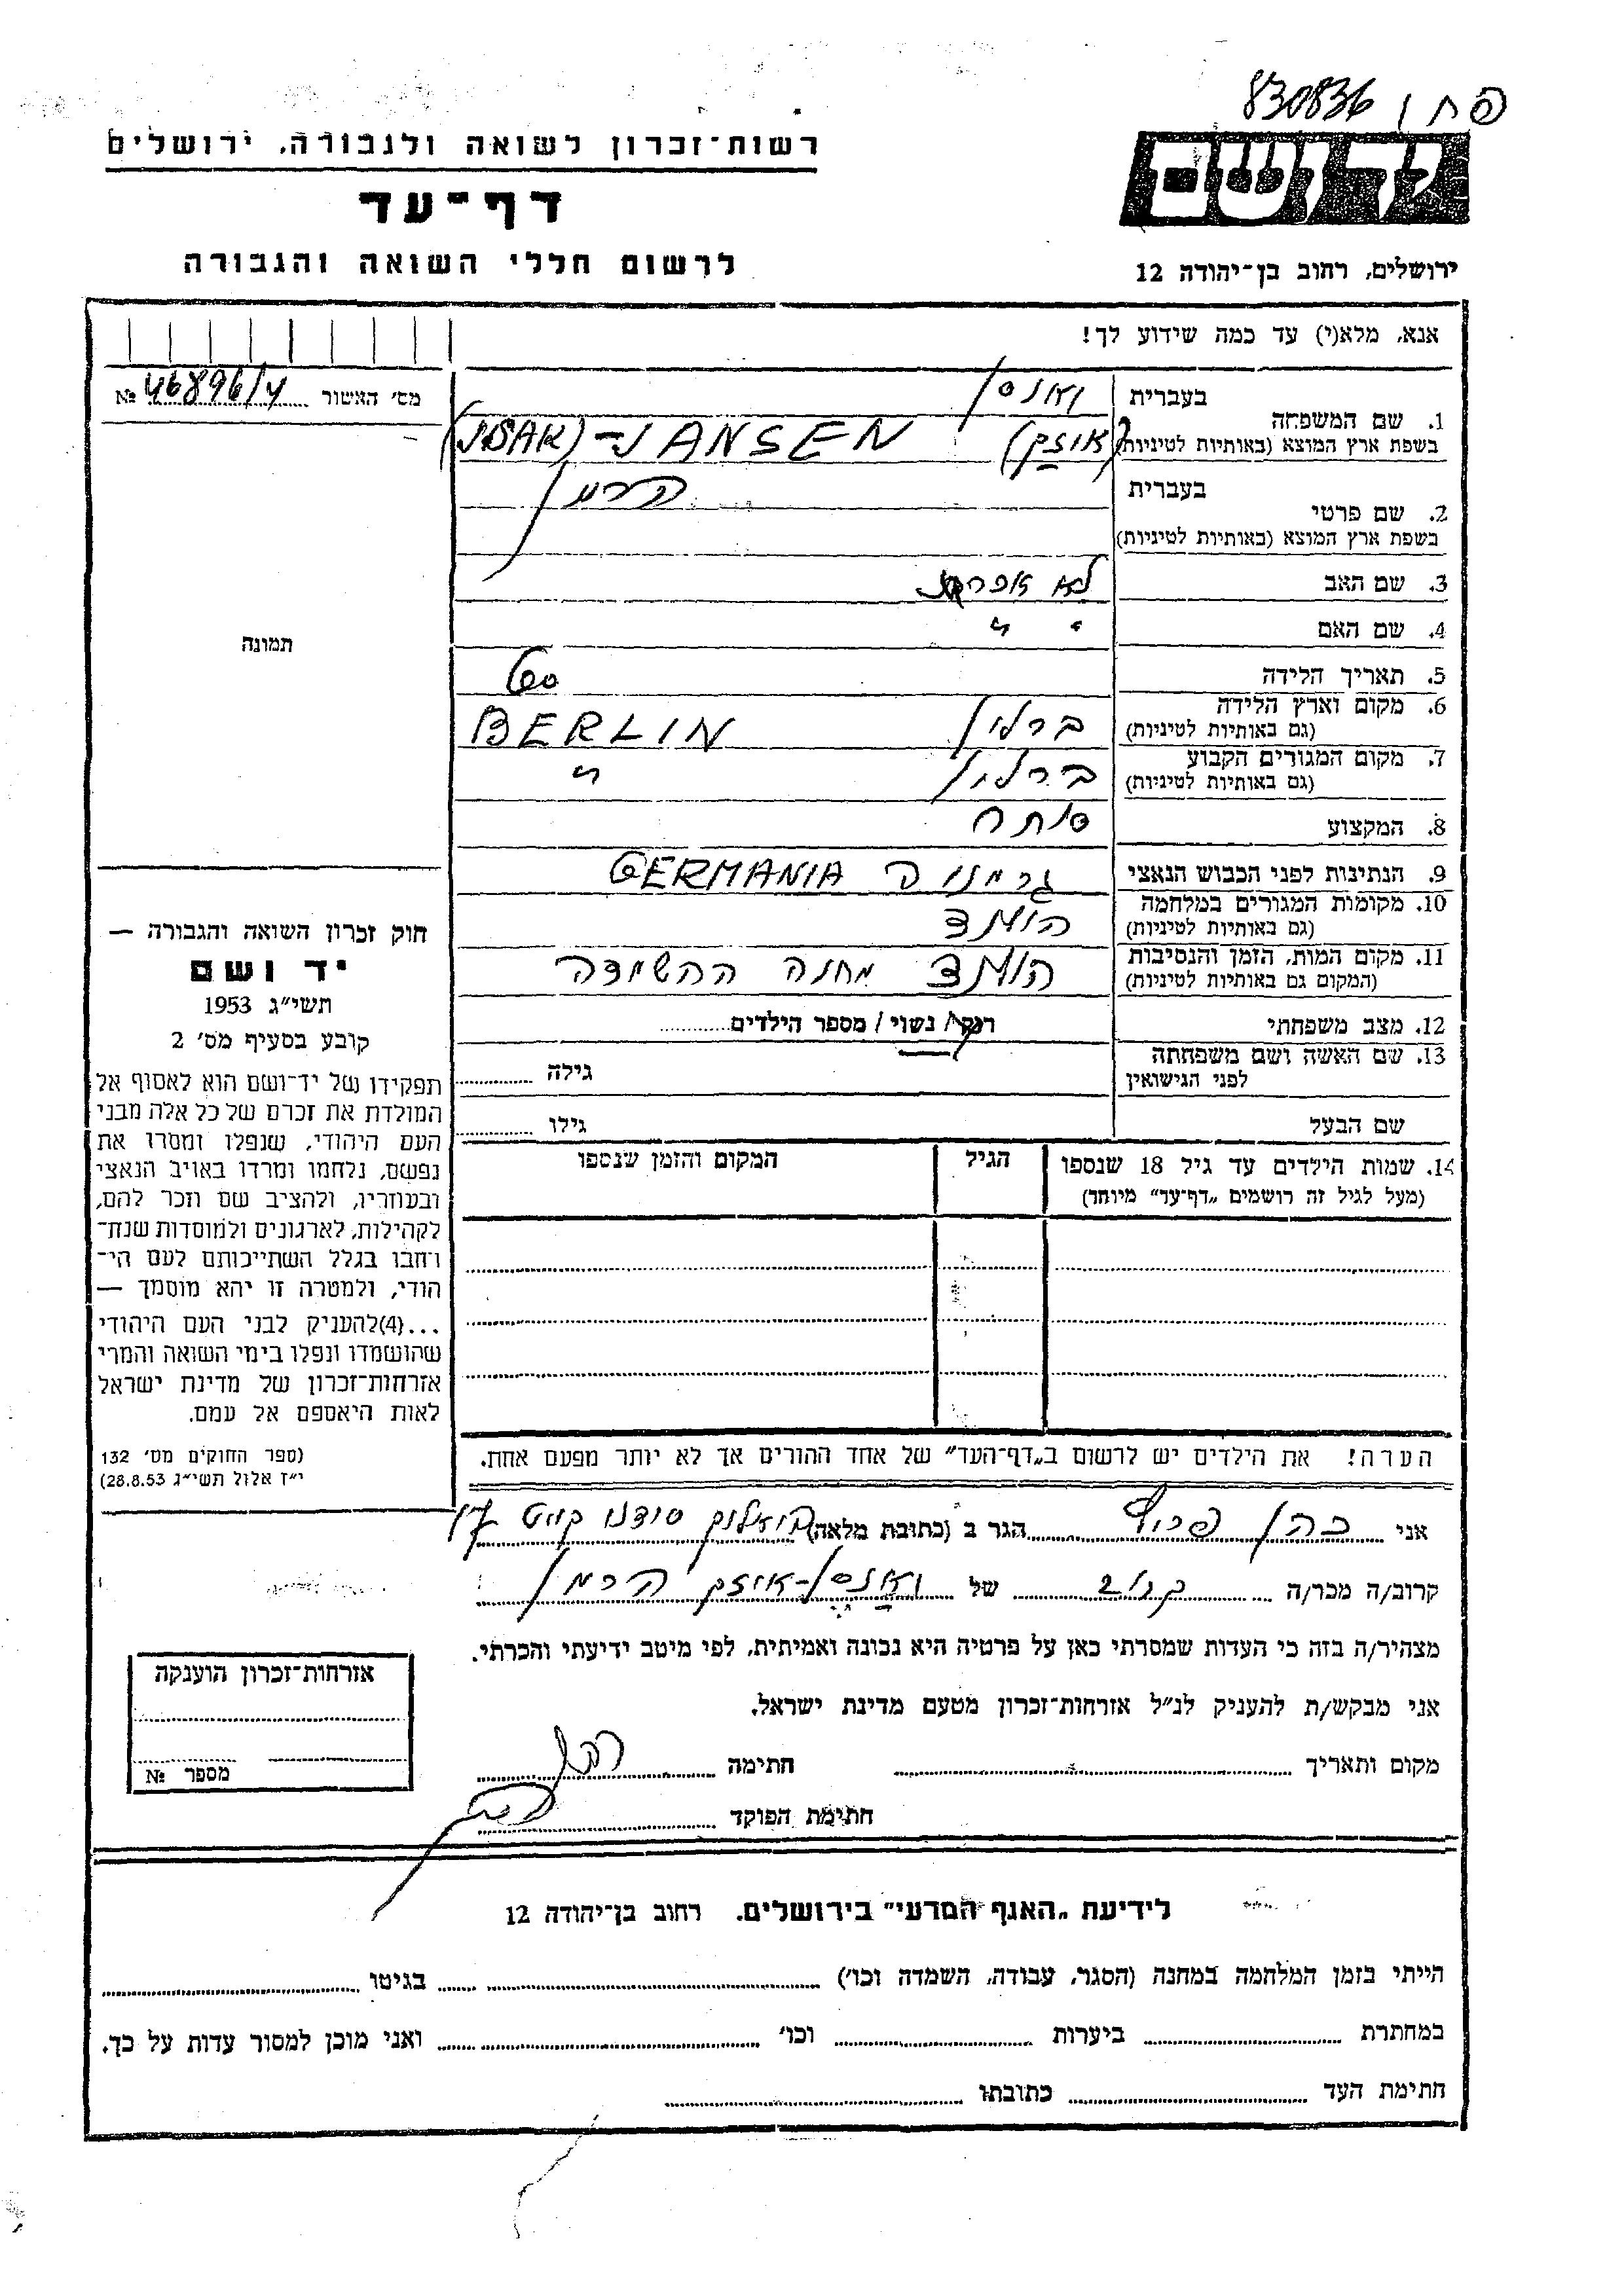 פ ח ן 830836
רשות־זכרון לשואה ולגבורה, ירושלים
דף־עד
לרשום חללי השואה והגבורה
יד ושם
ירושלים, רחוב בן־יהודה 12
אנא, מלא(י) עד כמה שידוע לך!
מס׳ האשור № 46896/4
1. שם המשפחה
בעברית
בשפת ארץ המוצא (באותיות לטיניות)
(ISAK)-JANSEN (אוזק)
2. שם פרטי
בעברית הרמן
בשפת ארץ המוצא (באותיות לטיניות)
3. שם האב לא
4. שם האם " "
5. תאריך הלידה 60
6. מקום וארץ הלידה ברלין BERLIN
(גם באותיות לטיניות)
7. מקום המגורים הקבוע ברלין "
(גם באותיות לטיניות)
8. המקצוע סוחר
9. הנתינות לפני הכבוש הנאצי גרמניה GERMANIA
10. מקומות המגורים במלחמה הולנד
(גם באותיות לטיניות)
11. מקום המות, הזמן והנסיבות הולנד מחנה ההשמדה
(המקום גם באותיות לטיניות)
12. מצב משפחתי רוק/ נשוי/ מספר הילדים
13. שם האשה ושם משפחתה
לפני הנישואין
גילה
שם הבעל גילו
14. שמות הילדים עד גיל 18 שנספו
(מעל לגיל זה רושמים „דף־עד” מיוחד)
הגיל
המקום והזמן שנספו
תמונה
חוק זכרון השואה והגבורה —
יד ושם
תשי״ג 1953
קובע בסעיף מס׳ 2
תפקידו של יד־ושם הוא לאסוף אל
המולדת את זכרם של כל אלה מבני
העם היהודי, שנפלו ומסרו את
נפשם, נלחמו ומרדו באויב הנאצי
ובעוזריו, ולהציב שם וזכר להם,
לקהילות, לארגונים ולמוסדות שנח־
רחבו בגלל השתייכותם לעם הי־
הודי, ולמטרה זו יהא מוסמך —
...(4)להעניק לבני העם היהודי
שהושמדו ונפלו בימי השואה והמרי
אזרחות־זכרון של מדינת ישראל
לאות היאספם אל עמם.
(ספר החוקים מס׳ 132
י״ז אלול תשי״ג 28.8.53)
הערה! את הילדים יש לרשום ב„דף־העד” של אחד ההורים אך לא יותר מפעם אחת.
אני כהן הגר ב (כתובת מלאה)
קרוב/ה מכר/ה של אוזק הרמן
מצהיר/ה בזה כי העדות שמסרתי כאן על פרטיה היא נכונה ואמיתית, לפי מיטב ידיעתי והכרתי.
אני מבקש/ת להעניק לנ״ל אזרחות־זכרון מטעם מדינת ישראל.
מקום ותאריך חתימה
חתימת הפוקד
אזרחות־זכרון הוענקה
מספר №
לידיעת „האגף המדעי” בירושלים. רחוב בן־יהודה 12
הייתי בזמן המלחמה במחנה (הסגר, עבודה, השמדה וכו׳) בגיטו
במחתרת ביערות וכו׳ ואני מוכן למסור עדות על כך.
חתימת העד כתובתו